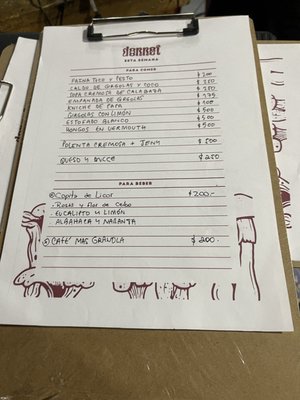 ESTA SEMANA
PARA COMER
FAINA TECO Y PESTO $200
CALDO DE GÁRGOLAS Y COCO $250
SOPA CREMOSA DE CALABAZA $250
EMPANADA DE GÁRGOLAS $175
KNICHE DE PAPA $100
GÍRGOLAS CON LIMÓN $500
ESTOFADO BLANCO $500
HONGOS EN VERMOUTH $500
POLENTA CREMOSA + $500
QUESO Y DULCE $250
PARA BEBER
Copita de Licor $200.-
- Rosell y Flor de Ceibo
- EUCALIPTO Y LIMÓN
ALBAHACA Y NARANJA
CAFÉ MAS GRAVOLA $200.